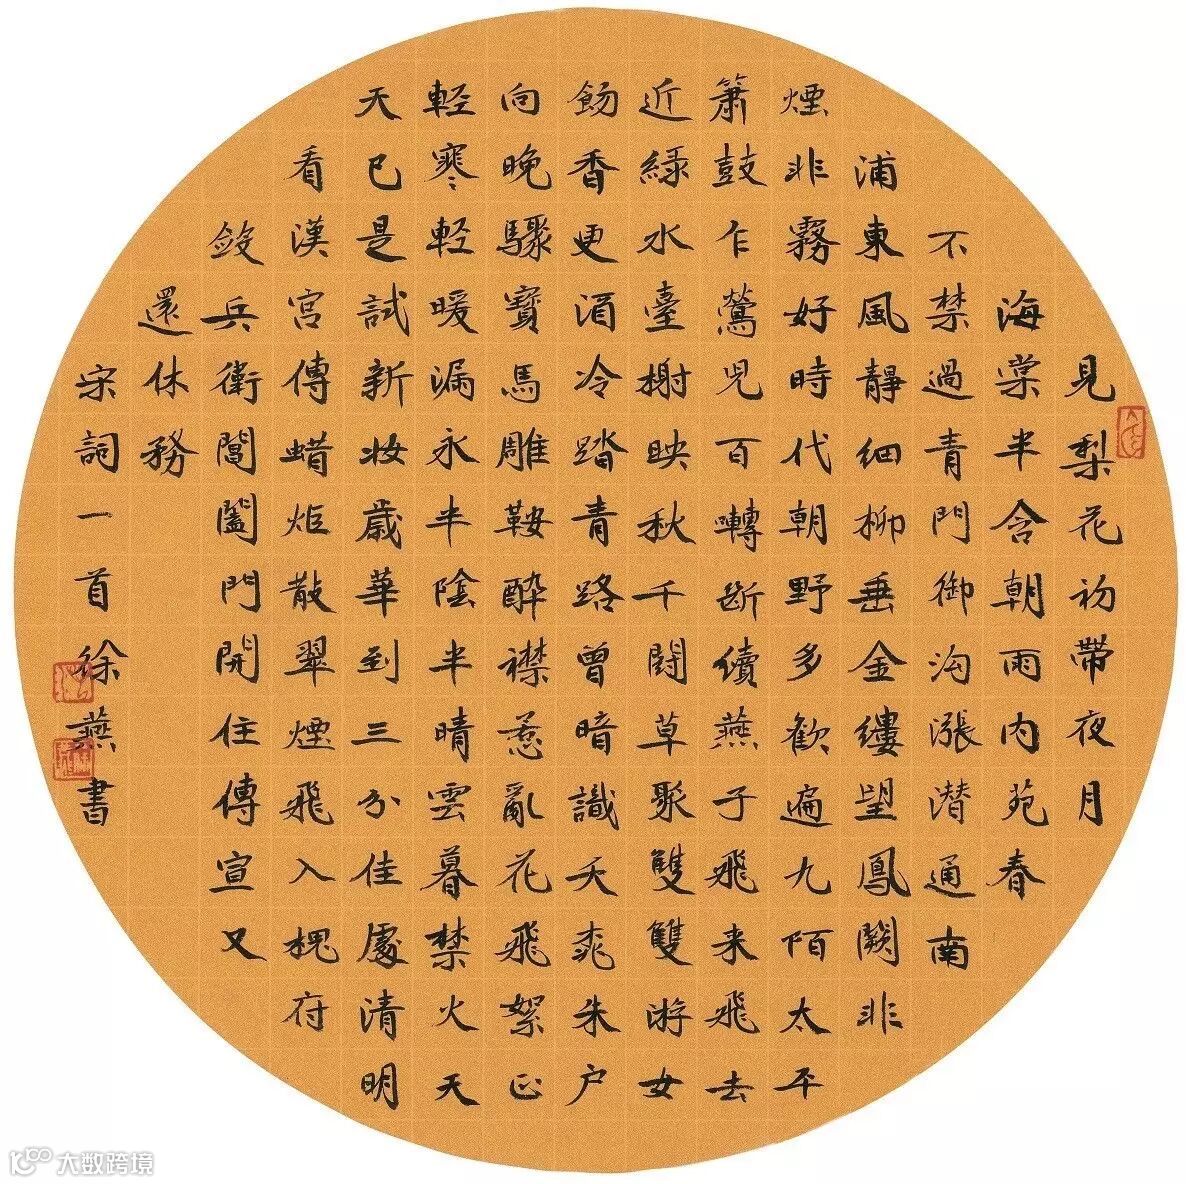 見梨花初帶夜月
海棠半含朝雨内苑春
不禁過青門御沟漲潜通南
浦東風靜細柳垂金縷望鳳闕非
煙非霧好時代朝野多歡遍九陌太平
簫鼓乍鶯兒百囀斷續燕子飛来飛去
近綠水臺榭映秋千鬪草聚雙雙游女
餳香更酒冷踏青路曾暗識夭桃朱户
向晚驟寶馬雕鞍醉襟惹亂花飛絮正
輕寒輕暖漏永半陰半晴雲暮禁火天
天已是試新妝歲華到三分佳處清明
看漢宮傳蜡炬散翠煙飛入槐府
斂兵衛閶闔門開住傳宣又
還休務
宋詞一首徐燕書
大数跨境